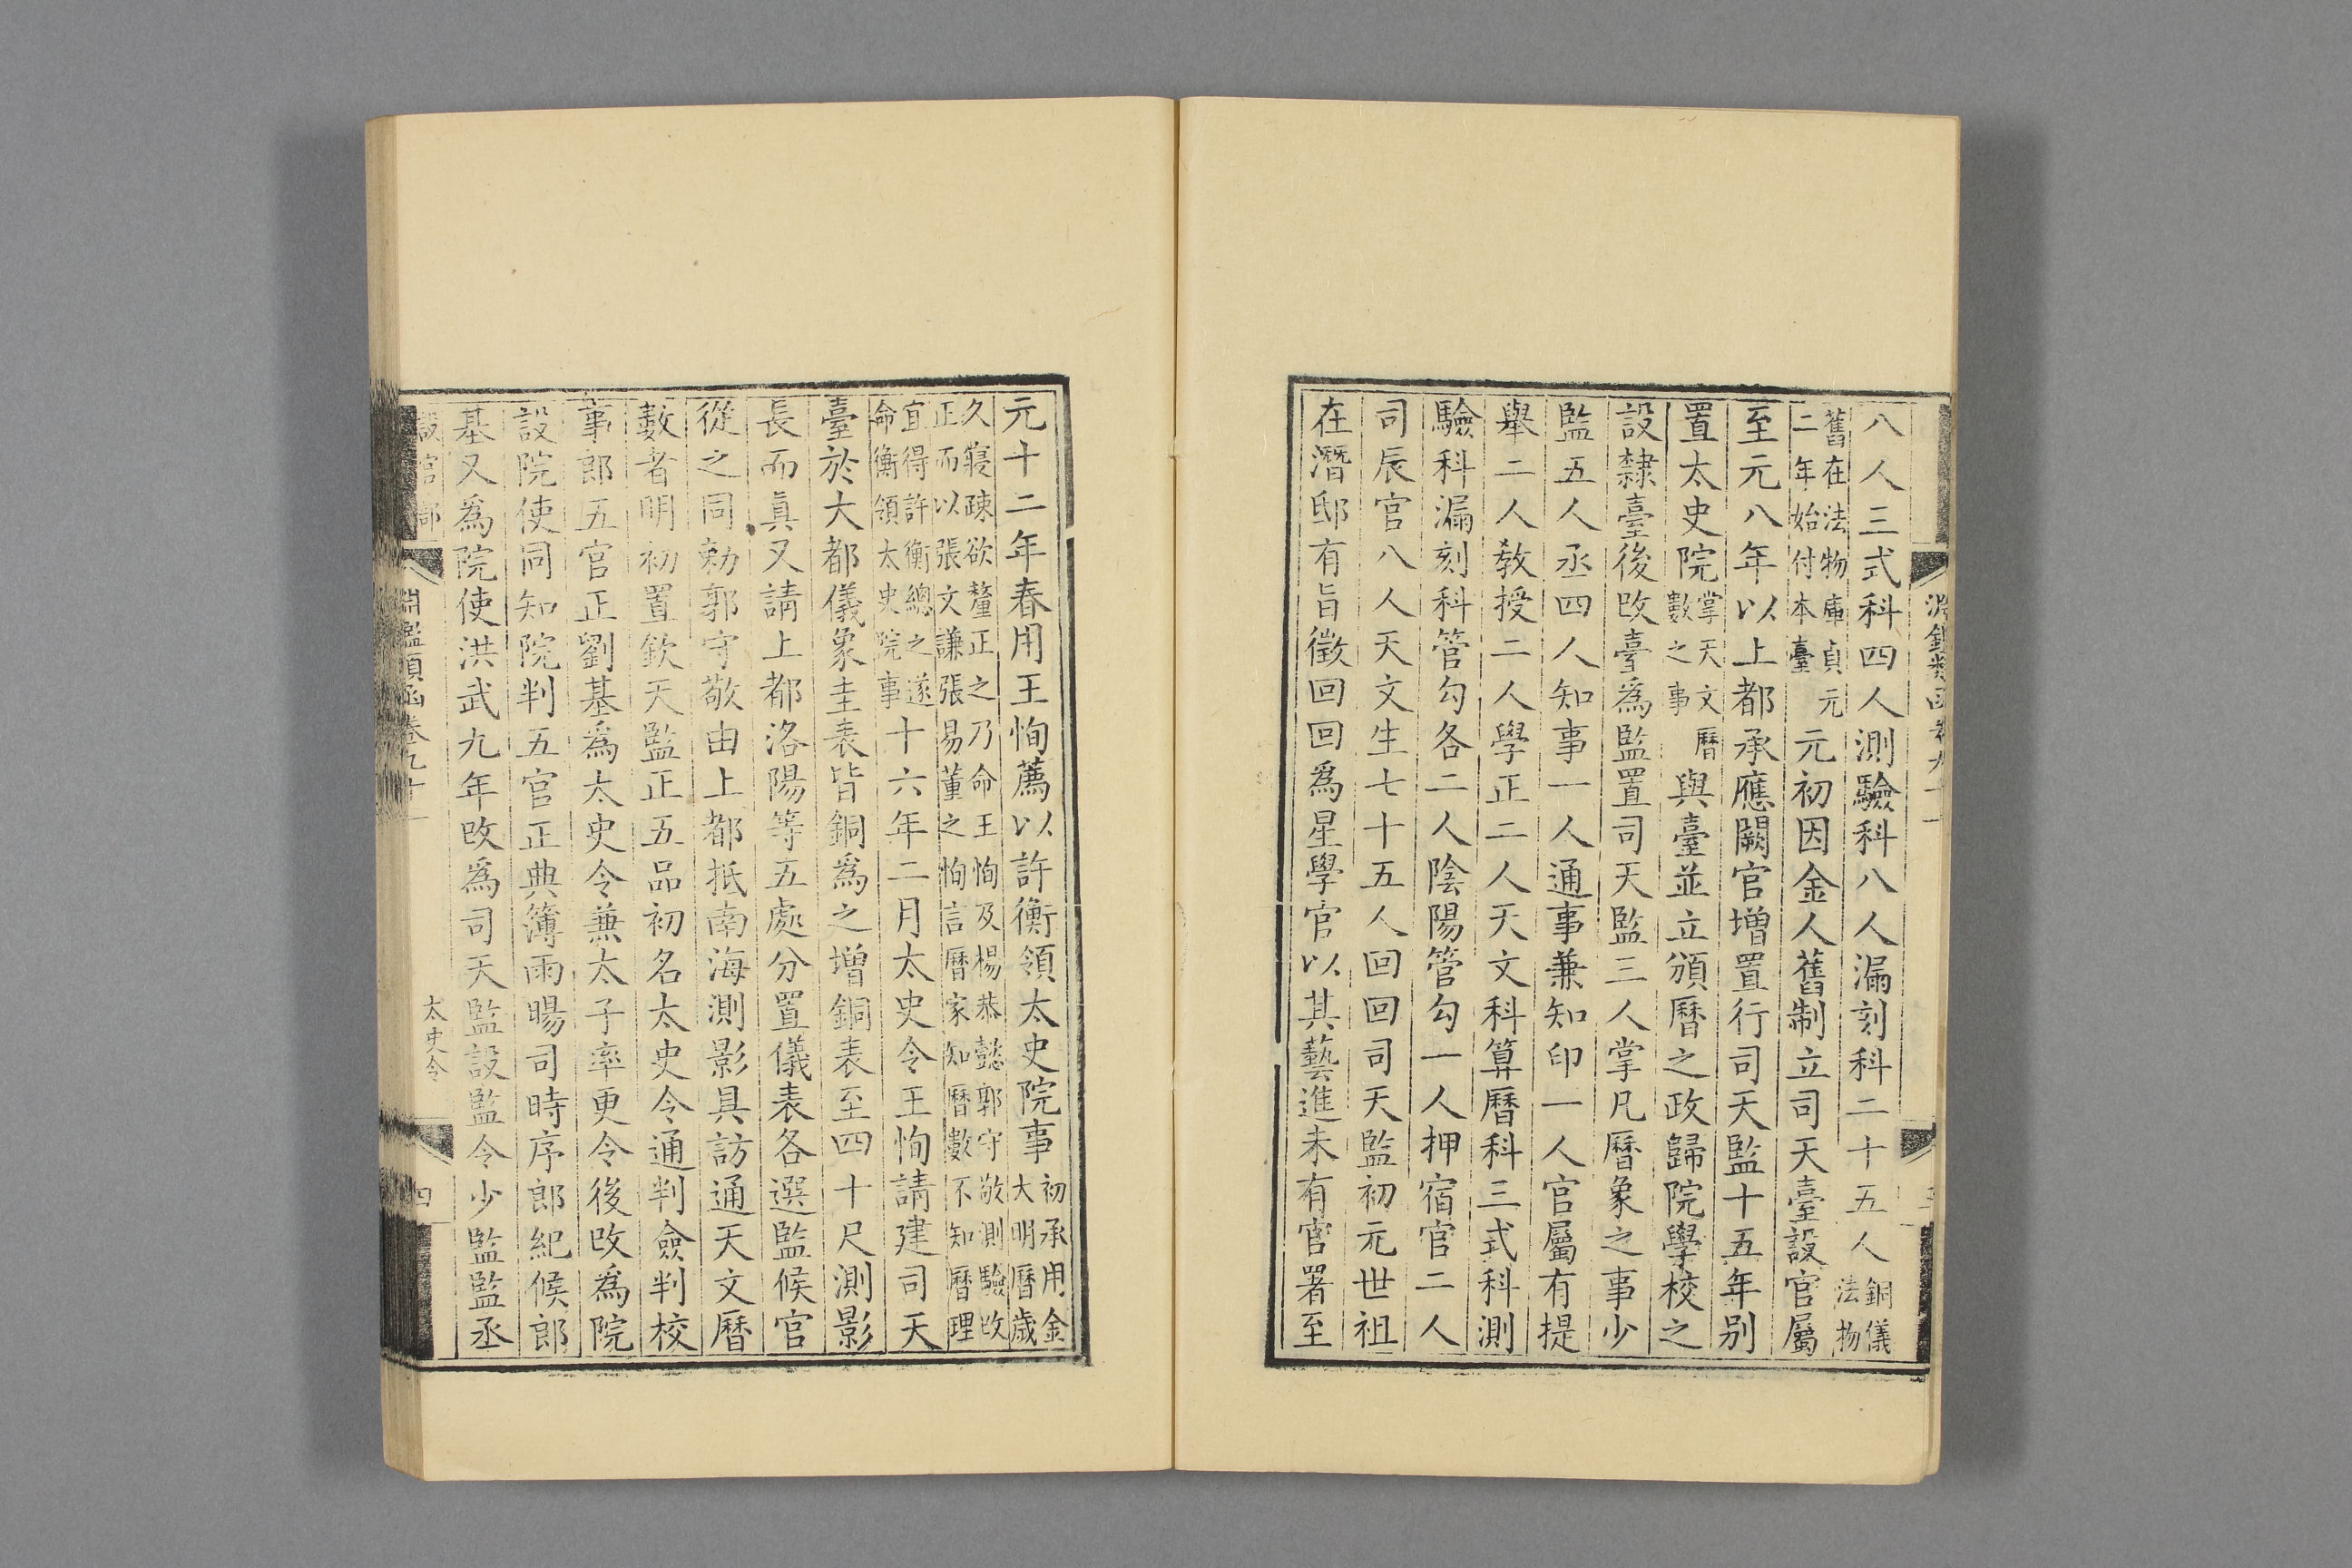 八人三式科四人測驗科八人漏刻科二十五人銅儀法物
舊在法物庫貞元二年始付本臺元初因金人舊制立司天臺設官屬
至元八年以上都承應闕官增置行司天監十五年別
置太史院掌天文曆數之事與臺並立頒曆之政歸院學校之
設隸臺後改臺爲監置司天監三人掌凡曆象之事少
監五人丞四人知事一人通事兼知印一人官屬有提
舉二人敎授二人學正二人天文科算曆科三式科測
驗科漏刻科管勾各二人陰陽管勾一人押宿官二人
司辰官八人天文生七十五人回回司天監初元世祖
在潛邸有旨徵回回爲星學官以其藝進未有官署至
元十二年春用王恂薦以許衡領太史院事初承用金大明曆歲
久寖疎欲釐正之乃命王恂及楊恭懿郭守敬測驗改正而以張文謙張易董之恂言曆家知曆數不知曆理
宜得許衡總之遂命衡領太史院事十六年二月太史令王恂請建司天
臺於大都儀象圭表皆銅爲之增銅表至四十尺測影
長而眞又請上都洛陽等五處分置儀表各選監候官
從之同勑郭守敬由上都抵南海測影具訪通天文曆
數者明初置欽天監正五品初名太史令通判僉判校
事郎五官正劉基爲太史令兼太子率更令後改爲院
設院使同知院判五官正典簿雨暘司時序郎紀候郎
基又爲院使洪武九年改爲司天監設監令少監監丞
設官部
淵鑑類函卷九十一
太史令
四